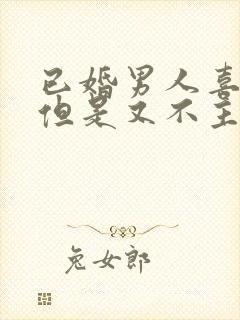 已婚男人喜
但是又不主
兔女郎